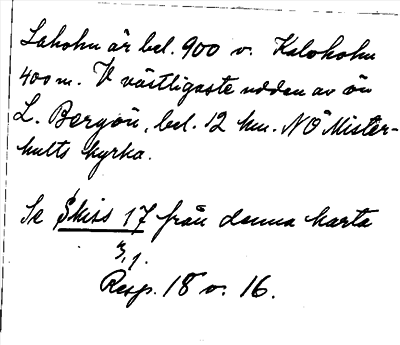 Laholm är bel. 900 v. Kaloholm
400 m. V västligaste udden av ön
L. Bergön, bel. 12 km. NÖ Mister-
hults kyrka.
Se Skiss 17 från denna karta
3,1.
Resp. 18 o. 16.